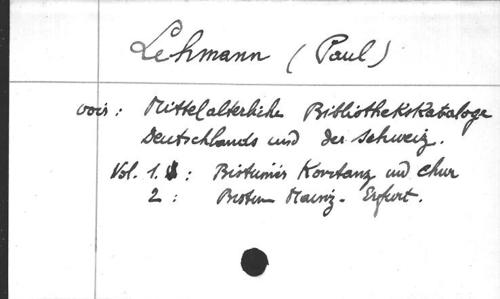 Lehmann (Paul)
voir : Mittelalterliche Bibliothekskataloge
Deutschlands und der Schweiz.
Vol. 1. : Bistümer Konstanz und Chur
2 : Bistum Mainz - Erfurt.